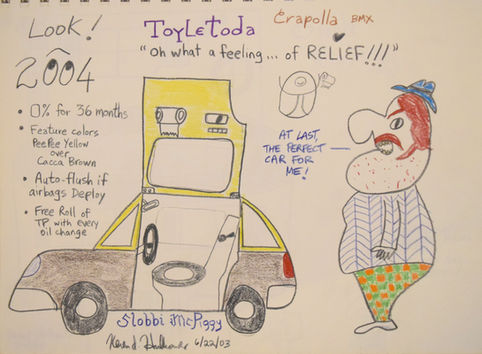 Look!
ToyLeToda
Crapolla BMX
"Oh what a feeling... of RELIEF!!!"
2004
• 0% for 36 months
• Feature colors
PeePee Yellow
over
Cacca Brown
• Auto-flush if
airbags Deploy
• Free Roll of
TP with every
oil change
AT LAST,
THE PERFECT
CAR FOR
ME!
Slobbi McPiggy
6/22/03